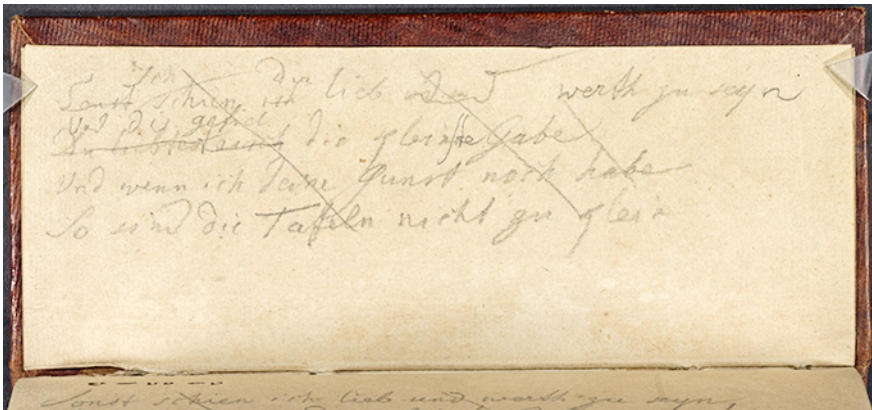 Ich Dir
Sonst schien ich lieb und werth zu seyn
Und dir gefiel
Du liebtest auch die kleinste Gabe
Und wenn ich deine Gunst noch habe
So sind die Tafeln nicht zu klein
Sonst schien ich lieb und werth zu seyn,